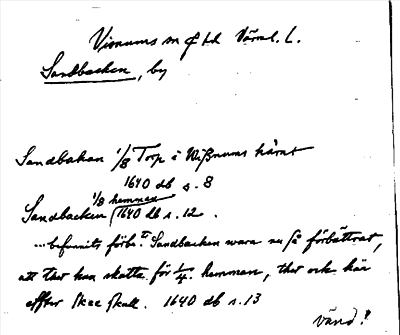 Visnums sn Värml. L.
Sandbacken, by
Sandbakan 1/8 Torp i Wißnums härat
1640 db s. 8
1/8 hemman
Sandbacken 1640 db s. 12.
...befinnits förbe:t Sandbacken wara nu så förbättrat,
att thet kan skatta för 1/4 hemman, ther och här
effter skee skall. 1640 db s. 13
vänd!